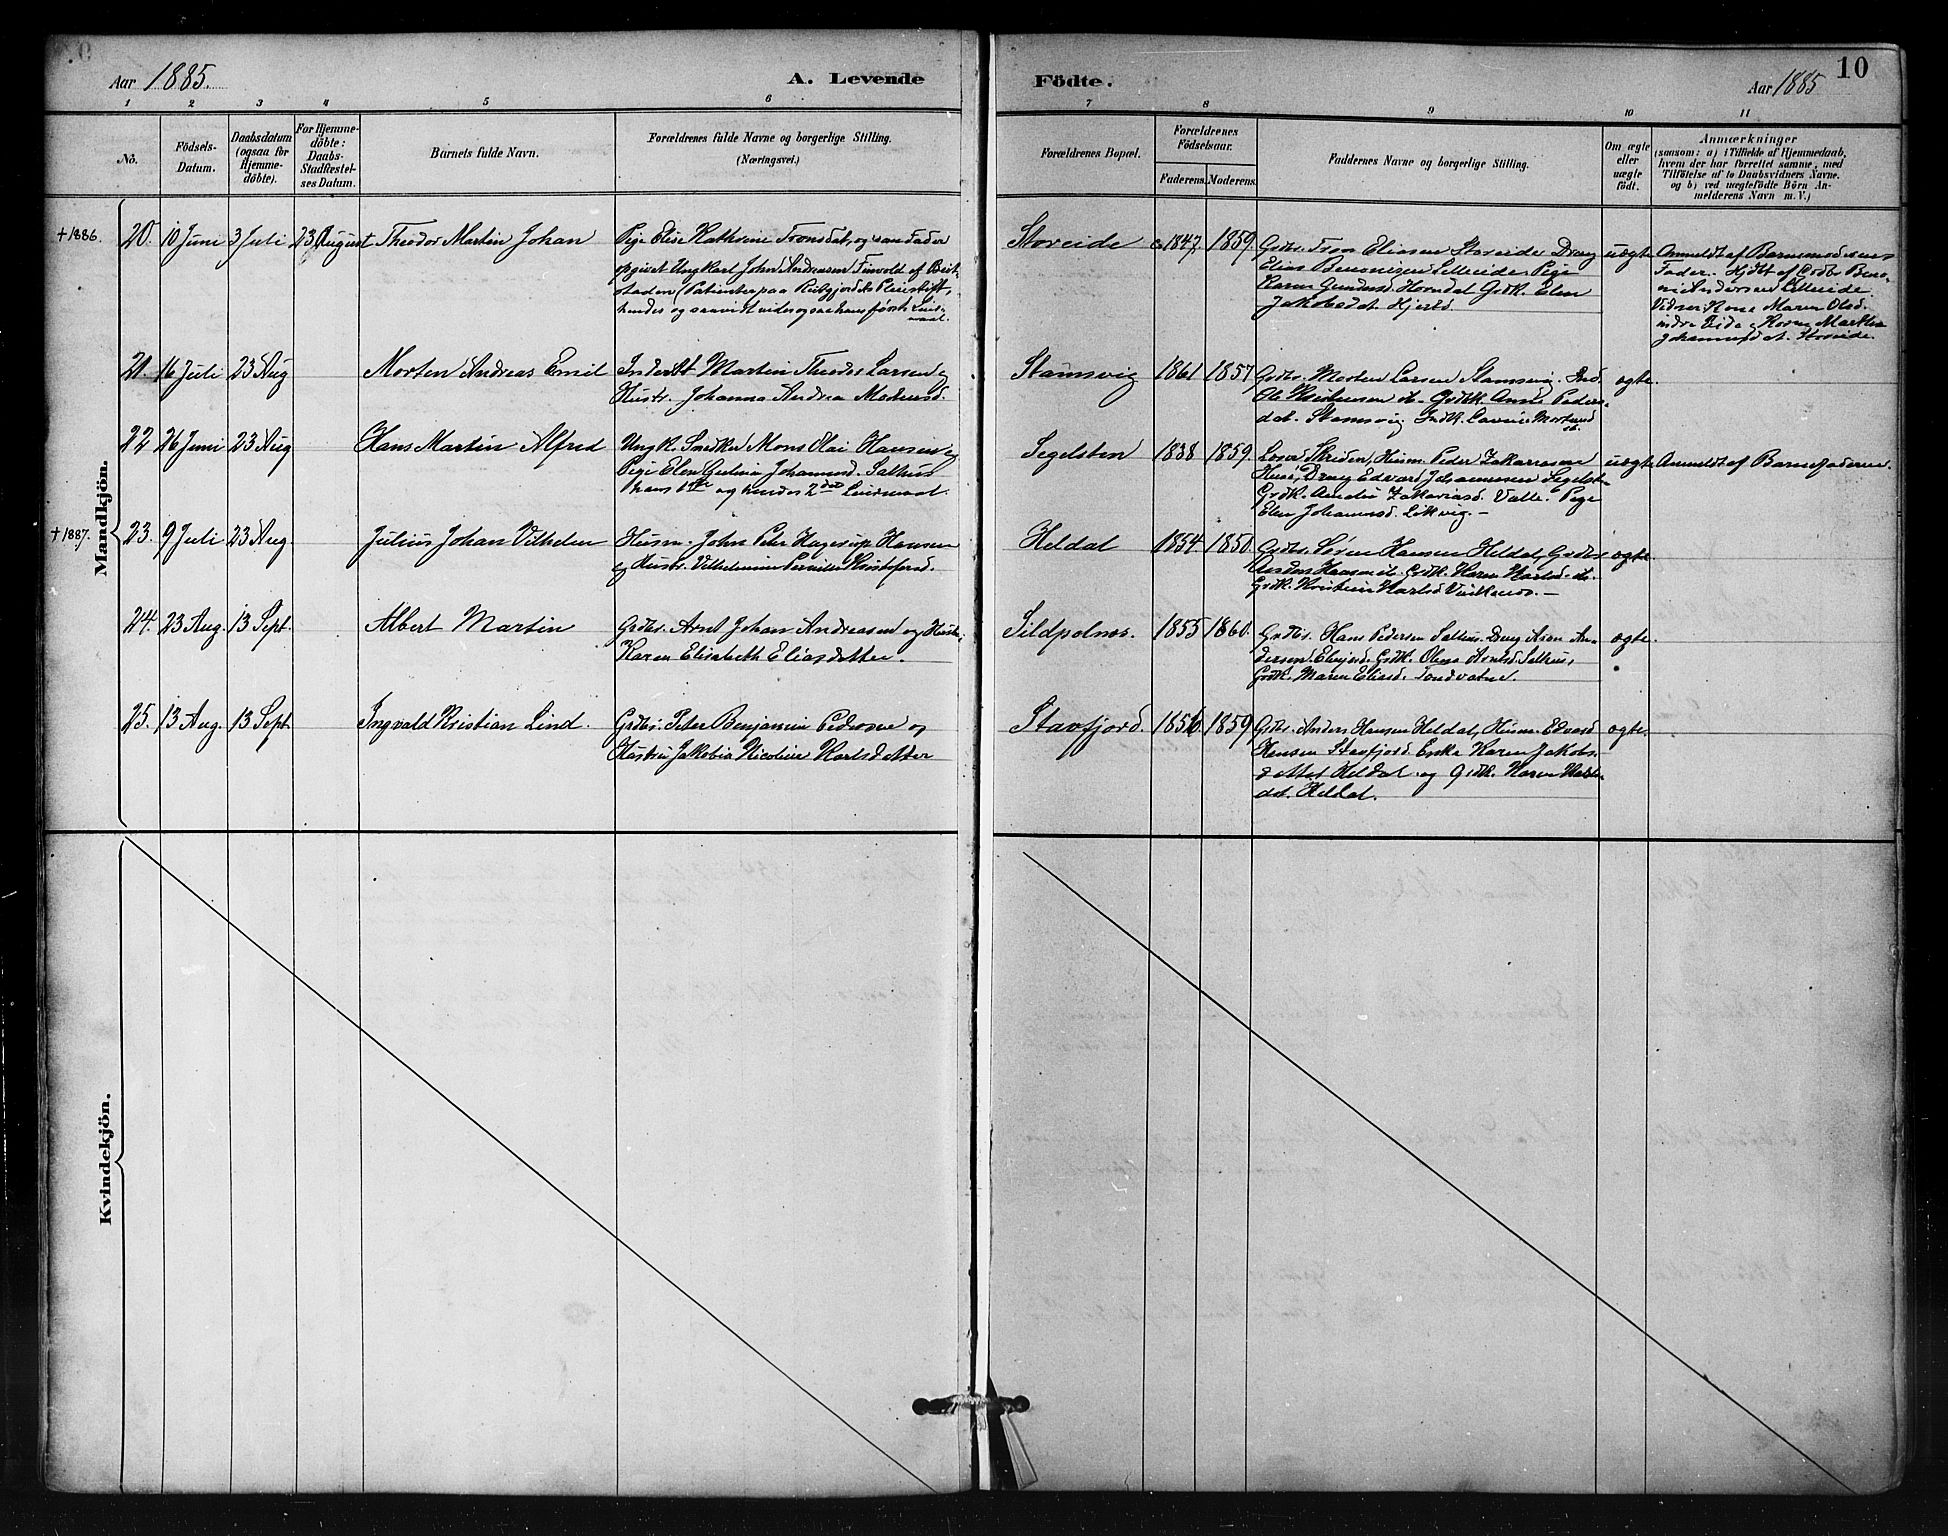 Aar 1885.
A. Levende
Födte.
Aar 1885
10
1 2 3 4 5 6
7 8 9 10 11
No.
Födsels-Datum.
Daabsdatum (ogsaa for Hjemme-döbte).
For Hjemme-döbte: Daabs-Stadfæstel-ses Datum.
Barnets fulde Navn.
Forældrenes fulde Navne og borgerlige Stilling. (Næringsvei.)
Forældrenes Bopæl.
Forældrenes Födselsaar.
Faderens. Moderens.
Faddernes Navne og borgerlige Stilling.
Om ægte eller uægte födt.
Anmærkninger
(saasom: a) i Tilfælde af Hjemmedaab,
hvem der har forrettet samme, med
Tilföielse af to Daabsvidners Navne.
og b) ved uægtefödte Börn An-
melderens Navn m. V.)
Mandkjön.
+1886. 20. 10 Juni 3 Juli 23 August Theodor Martin Johan
Pige Elise Kathrine Tronsdat, og som Fader
opgivet Ungkarl John Andreasen Finvold af Beit-
staden (Patienter paa Reitgjerdets Pleiestift,
hendes og saavidt vides ogsaa hans første Leier-
maal.
Storeide 1847 1859
Grdbr. Tron Eliassen Storeide Dreng
Elias Benonisen Lilleeide Pige
Karen Gundersd. Horndal Grdk. Elen
Jakobsdat. Hjerts
uægte
Anmeldt af Barnemoderens
Fader. Hjdt af Grdbr Beno-
ni Andersen Lilleeide
Vidner Kone Maren Olsd.
indre Eide, Kone Marthe
Johannesdat. Storeide.
21. 16 Juli 23 Aug Morten Andreas Emil
Inderst Martin Theodor Larsen og
Hustr. Johanna Andrea Mortensd.
Stamsvig 1861 1857
Grdbr. Morten Larsen Stamsvig. Ind.
Ole Kristensen do Grdk. Anne Peders-
dat. Stamsvig Indk. Lavine Mortensd
do.
ægte.
22 26 Juni 23 Aug Hans Martin Alfred
Ungk. Snedker Mons Olai Hansen og
Pige Elen Gurine Johannesd. Salhus
hans 1ste og hendes 2det Leiermaal.
Segelsten 1838 1859.
Peder Zakariasen
Dreng Edvard Johannesen Segelst.
Grdk. Amelie Zakariasd. Valle. Pige
Elen Johannesd. Likvig. –
uægte Anmeldt af Barnefaderen.
+1887. 23. 9 Juli 23 Aug Julius Johan Vilhelm
Husm. John Peter Hagerup Hansen
og Hustr. Vilhelmine Pernille Kristofersd.
Heldal 1854 1850.
Grdbr. Søren Hansen Heldal, Grdbr
Anders Hansen do. Grdk. Karen Karlsd. do.
Grdk. Kristine Karlsd Vinkenes. –
ægte.
24. 23 Aug. 13 Sept. Albert Martin
Grdbr. Arnt Johan Andreasen og Hustr.
Karen Elisabeth Eliasdatter.
Sildpolnes. 1855 1860.
Grdbr. Hans Pedersen Salhus. Dreng Aron An-
dersen Elvejord. Grdk. Olena Arntsd. Salhus,
Grdk. Maren Eliasd. Tandvatne.
ægte.
25. 13 Aug. 13 Sept. Ingvald Kristian Lind.
Grdbr. Peter Benjamin Pedersen og
Hustru Jakobia Nicoline Karlsdatter
Stavfjord. 1856 1859
Grdbr. Anders Hansen Heldal, Husm. Edvard
Hansen Stavfjord. Enke Karen Jakobs-
datter Heldal og Grdk. Karen Karls-
dat. Heldal.
ægte.
Kvindekjön.